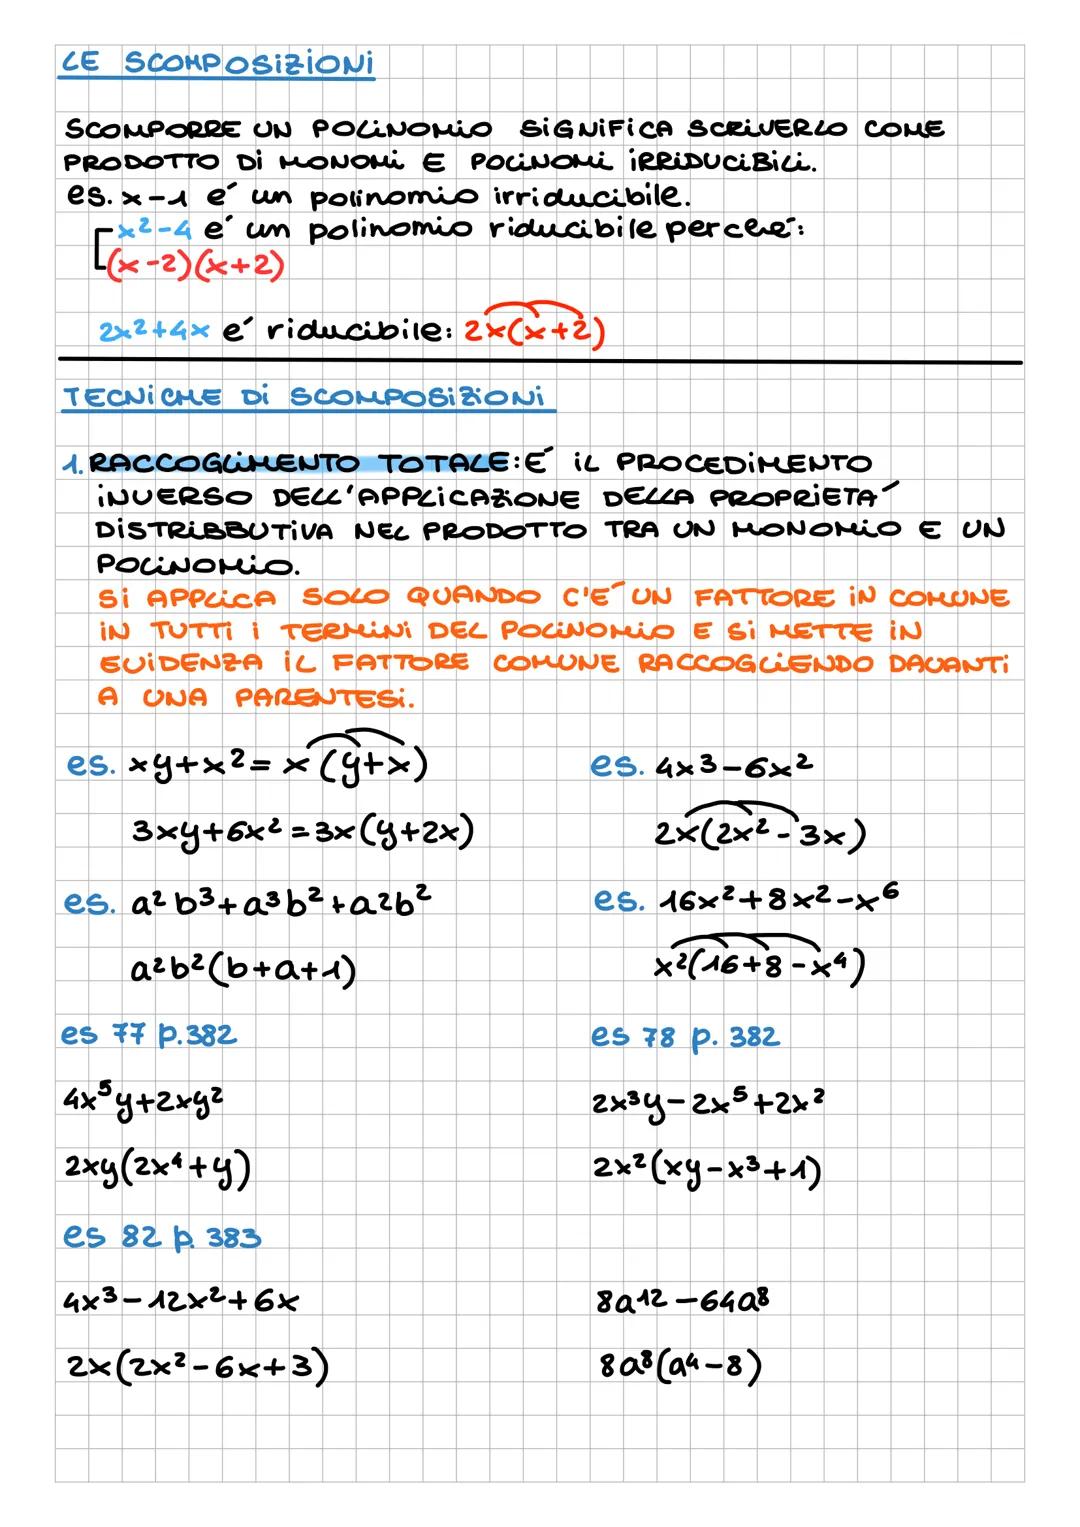 LE SCOMPOSIZIONI
SCOMPORRE UN POLINOMIO SIGNIFICA SCRIVERLO COME
PRODOTTO DI MONOMI E POLINOMI IRRIDUCIBILI.
es. x-1 e' un polinomio irriducibile.
x²-4 e' un polinomio riducibile perche':
(x-2)(x+2)
2x²+4x e' riducibile: 2x(x+2)
TECNICHE DI SCOMPOSIZIONI
1. RACCOGLIMENTO TOTALE: E' IL PROCEDIMENTO
INVERSO DELL'APPLICAZIONE DELLA PROPRIETA'
DISTRIBBUTIVA NEL PRODOTTO TRA UN MONOMIO E UN
POLINOMIO.
SI APPLICA SOLO QUANDO C'E' UN FATTORE IN COMUNE
IN TUTTI I TERMINI DEL POLINOMIO E SI METTE IN
EVIDENZA IL FATTORE COMUNE RACCOGLIENDO DAVANTI
A UNA PARENTESI.
es. xy+x²= x(y+x)
3xy+6x²=3x(y+2x)
es. 4x³-6x²
2x(2x²-3x)
es. a²b³+a³b²+a²b²
a²b²(b+a+1)
es. 16x²+8x²-x⁶
x²(16+8-x⁴)
es 77 p.382
4x⁵y+2xy²
2xy(2x⁴+y)
es 78 p. 382
2x³y-2x⁵+2x²
2x²(xy-x³+1)
es 82 p. 383
4x³-12x²+6x
2x(2x²-6x+3)
8a¹²-64a⁸
8a⁸(a⁴-8)